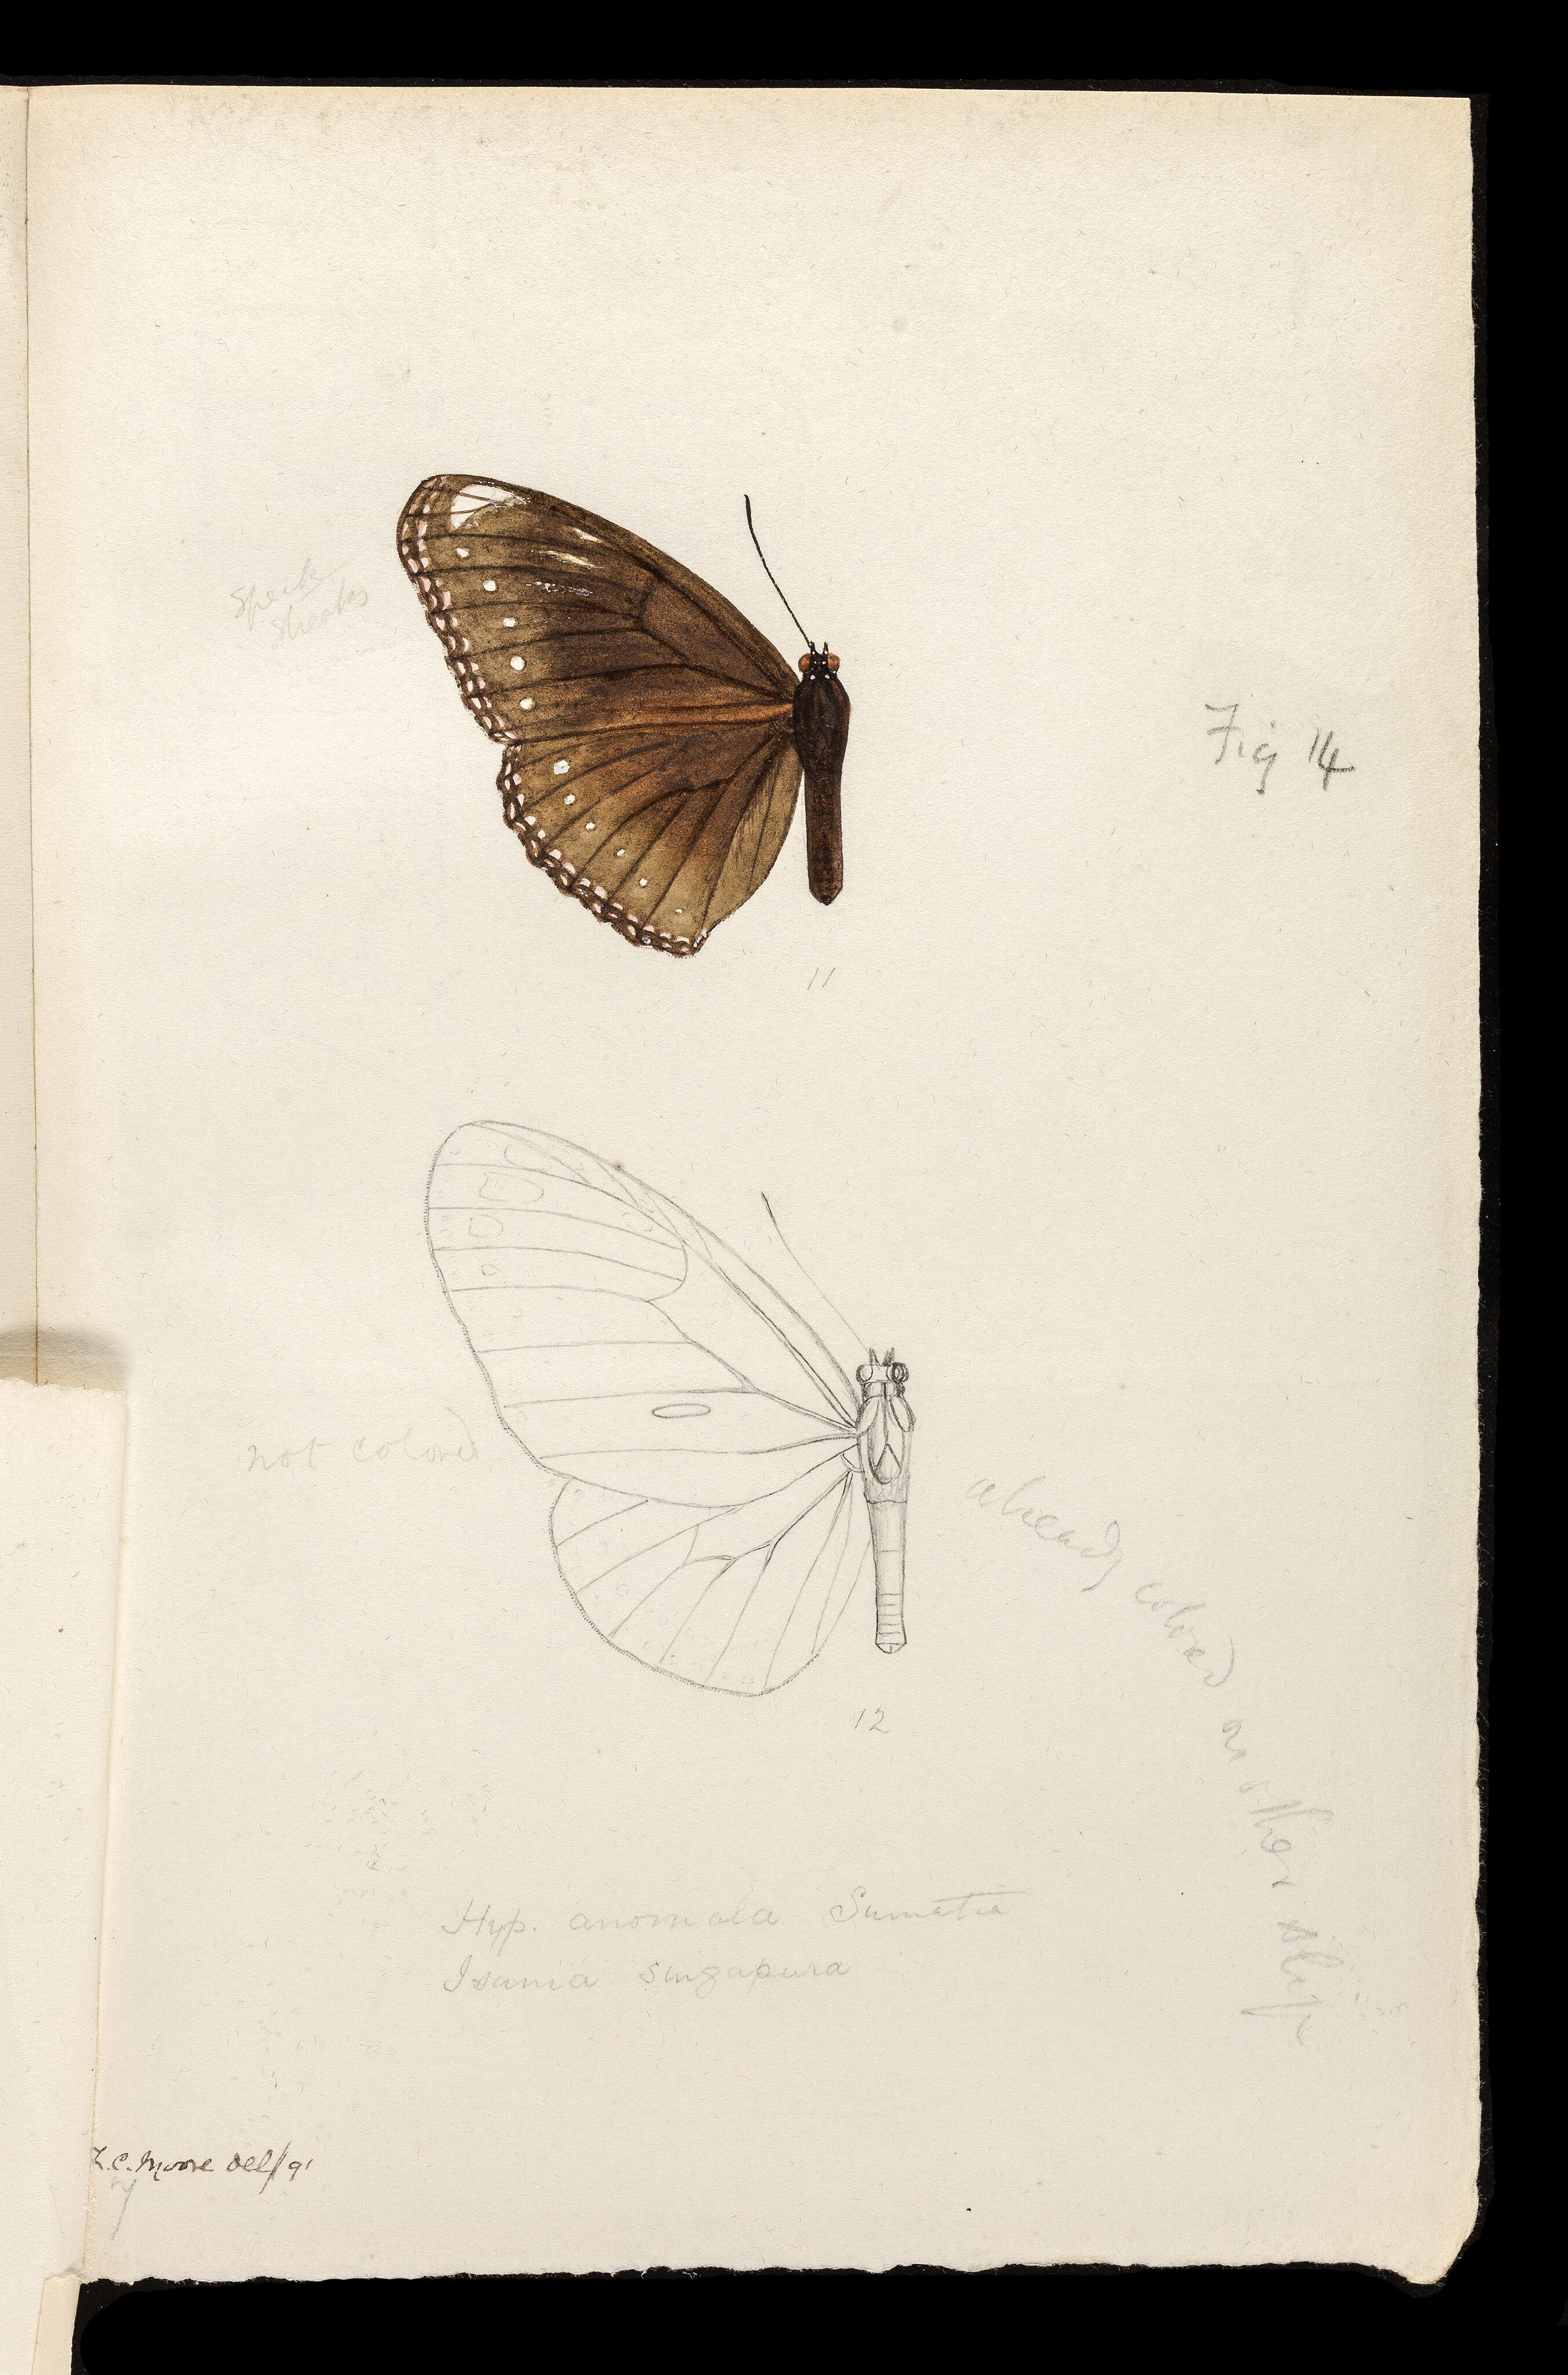 streaks
Fig 14
11
not colored
already colored
another slip
12
Hyp. anomala Sumatra
Isamia singapura
F.C. Moore del/91
7